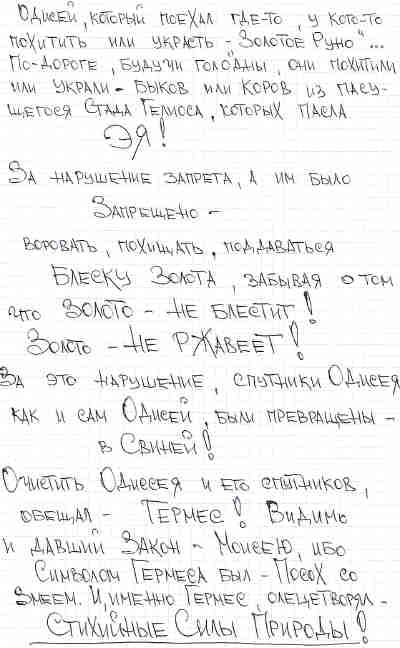 Одисей, который поехал где-то, у кого-то
похитить или украсть - "Золотое Руно"...
По-дороге, будучи голодны, они похитили
или украли - быков или коров из пасу-
щегося Стада Гелиоса, которых пасла
Эя!
За нарушение запрета, а им было
Запрещено -
воровать, похищать, поддаваться
Блеску Золота, забывая о том
что Золото - не блестит!
Золото - не ржавеет!
За это нарушение, спутники Одисея
как и сам Одисей, были превращены -
в Свиней!
Очистить Одисея и его спутников,
обещал - Гермес! Видимо
и давший Закон - Моисею, ибо
Символом Гермеса был - Посох со
Змеем. И, именно Гермес, олецетворял -
Стихийные Силы Природы!